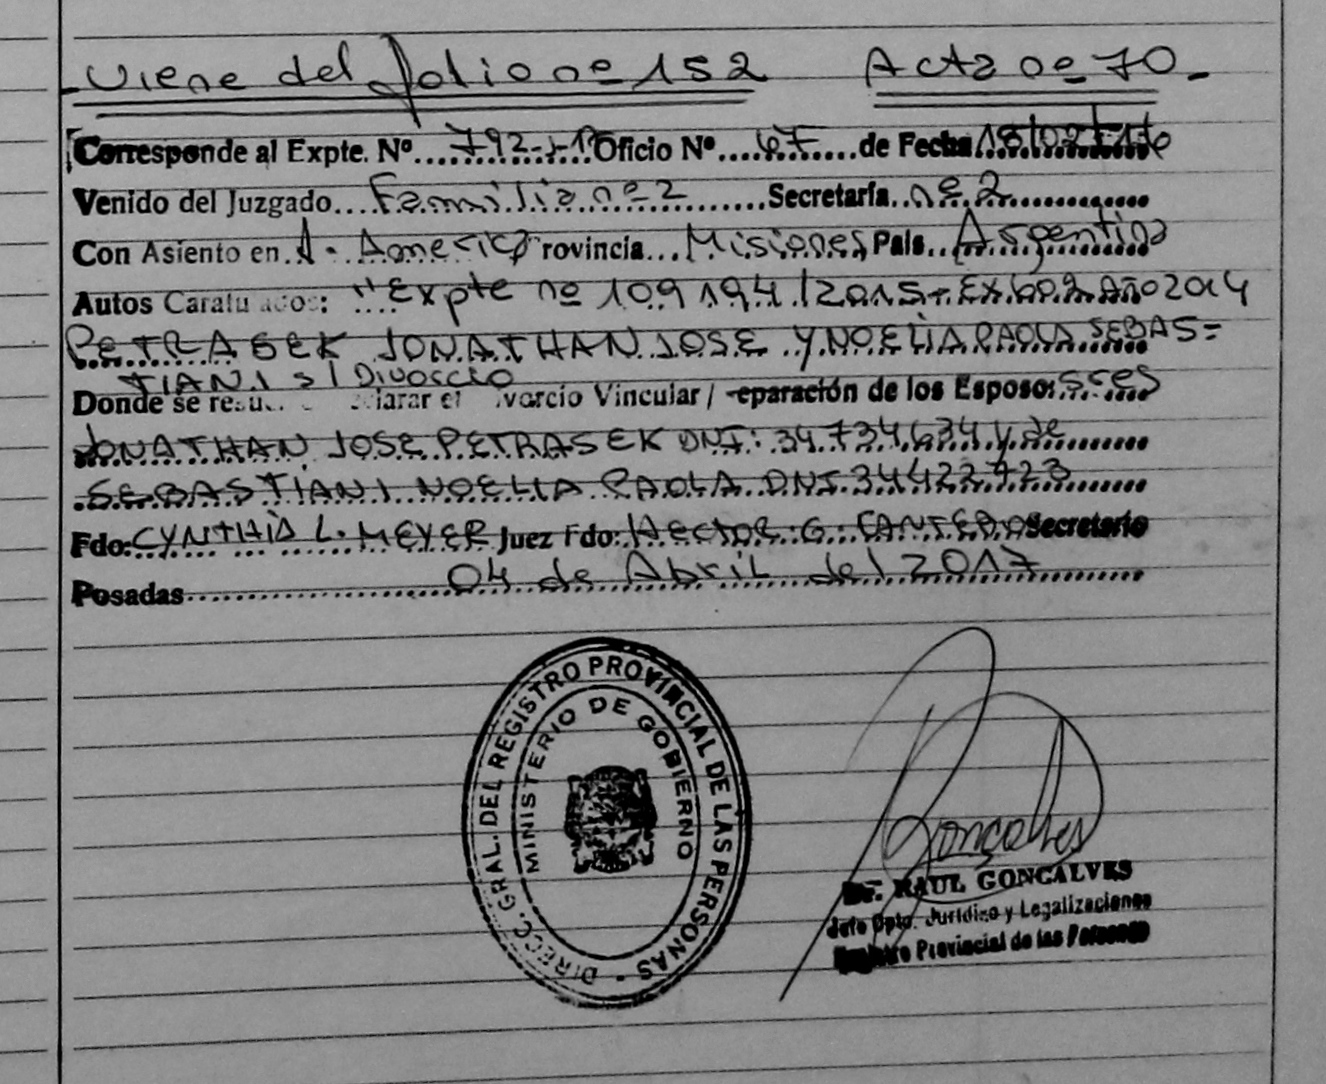 -Viene del folio nº 152 Acta nº 70-
Corresponde al Expte. Nº....792-....Oficio Nº....67......de Fecha
Venido del Juzgado....Familia nº 2........Secretaría..nº 2............
Con Asiento en..A. America Provincia...Misiones País..Argentina
Autos Caratu ados: ...."Expte nº 109194/2015-Ex.602 Año 2014
PETRASEK JONATHAN JOSE Y NOELIA PAOLA SEBAS=
TIANI s/ Divorcio
Donde se resu.. larar el vorcio Vincular / eparación de los Esposos sres
JONATHAN JOSE PETRASEK DNI: 34.734.634 y de
SEBASTIANI NOELIA PAOLA DNI 34422723
Fdo: CYNTHIA L. MEYER Juez Fdo: HECTOR G. CANTERO Secretario
Posadas......04 de Abril del 2017......
DIRECC. GRAL. DEL REGISTRO PROVINCIAL DE LAS PERSONAS -
MINISTERIO DE GOBIERNO
Goncalves
Dr. RAUL GONCALVES
Jefe Dpto. Jurídico y Legalizaciones
Registro Provincial de las Personas